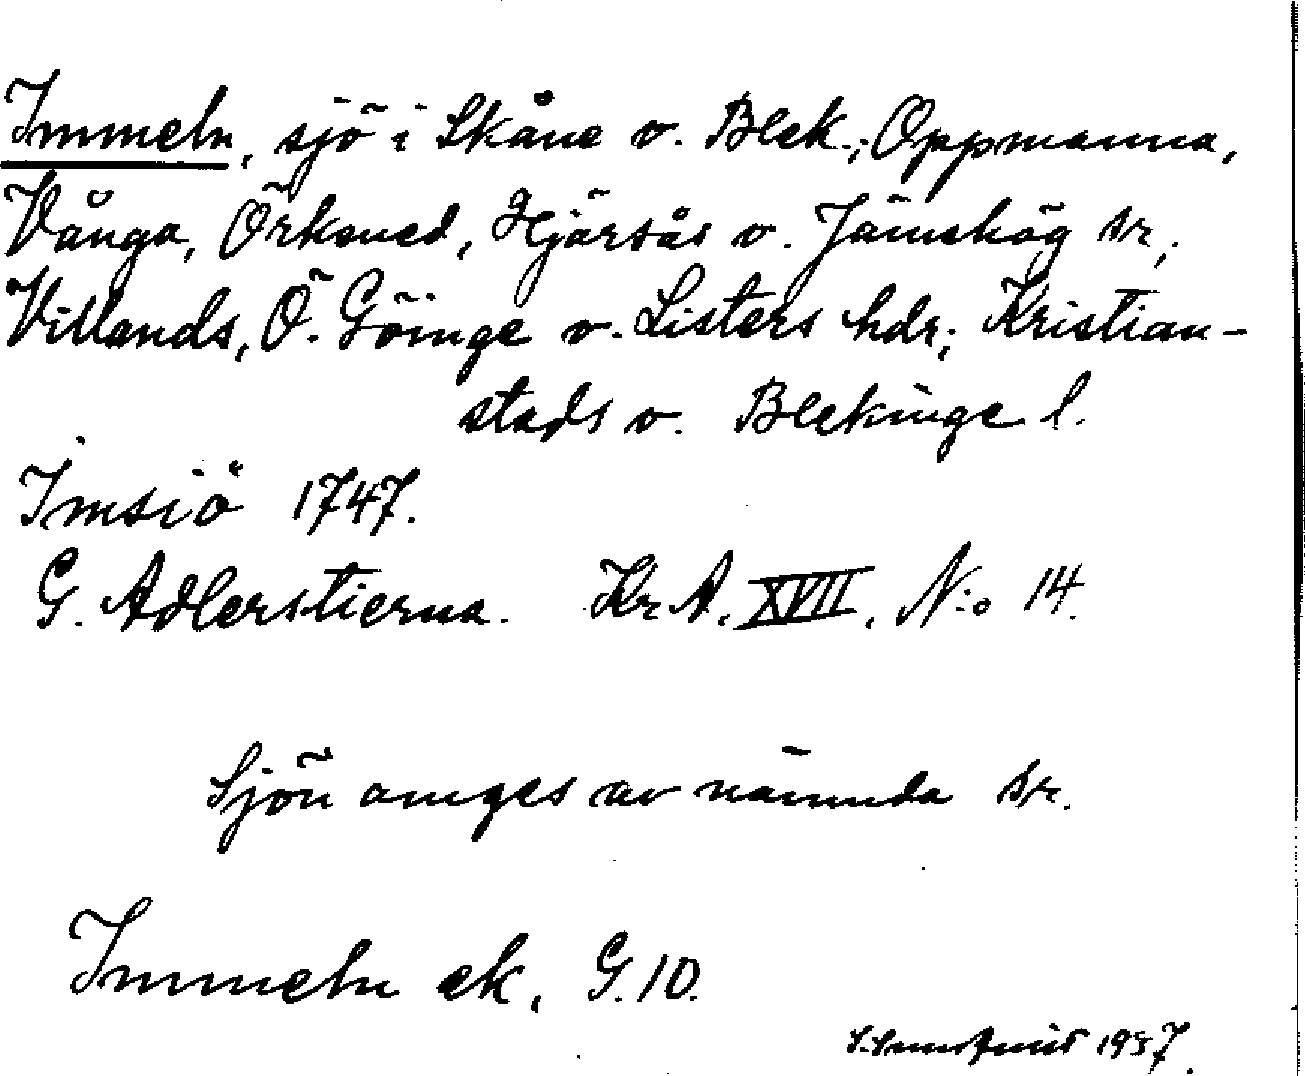 Immeln, sjö i Skåne o. Blek.; Oppmanna,
Vånga, Örkened, Hjärsås o. Jämshög sr,;
Villands, Ö. Göinge o. Listers hdr; Kristian-
stads o. Blekinge l.
Imsiö 1747.
G. Adlerstierna. Kr A. XVII, N:o 14.
Sjön omges av nämnda sr.
Immeln ek, G. 10.
1957.